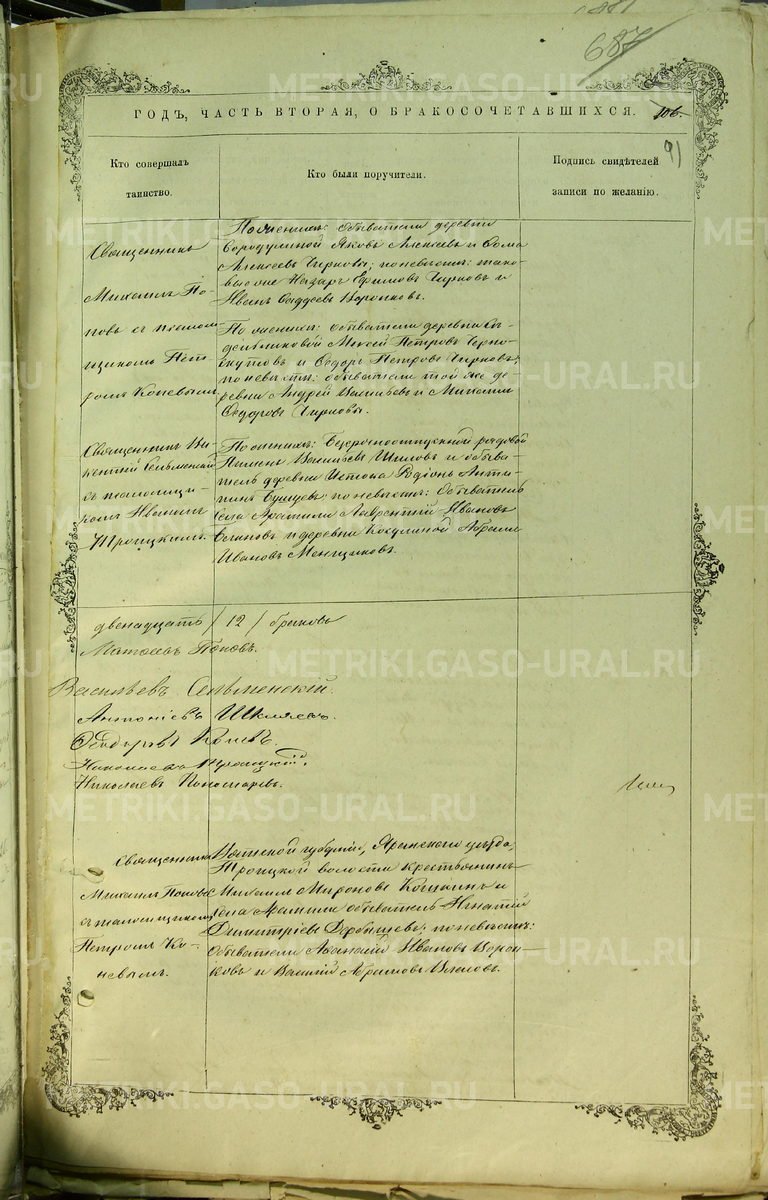 687
ГОДЪ, ЧАСТЬ ВТОРАЯ, О БРАКОСОЧЕТАВШИХСЯ.
106.
91
Кто совершалъ
таинство.
Кто были поручители.
Подпись свидѣтелей
записи по желанію.
Священникъ
Михаилъ По-
повъ съ псалом-
щикомъ Пет-
ромъ Коневымъ.
По женихѣ: обыватели деревни
Бородулиной Яковъ Алексѣевъ и Ѳома
Алексѣевъ Чирковы; по невѣстѣ: тако-
вые же Назаръ Ефимовъ Чирковъ и
Иванъ Ѳаддеевъ Воронковъ.
По женихѣ: обыватели деревни
Петровъ Черно-
скутовъ и Ѳедоръ Петровъ Чирковъ;
по невѣстѣ: обыватели той же де-
ревни Андрей Васильевъ и Михаилъ
Ѳедоровъ Чирковы.
Священникъ Ви-
кентій Сельменскій
съ псаломщи-
комъ Иваномъ
Троицкимъ.
По женихѣ: Безсрочноотпускной рядовой
Васильевъ Шиловъ и обыва-
тель деревни Истока Родіонъ Анти-
пинъ по невѣстѣ: Обыватель
села Арамили Лаврентій Ивановъ
и деревни Косулиной Абрамъ
Ивановъ Менщиковъ.
двенадцать /12/ браковъ
Матѳеевъ Поповъ.
Васильевъ Сельменскій.
Антоніевъ Шкляевъ.
Ѳеодоровъ Коневъ.
Николаевъ Троицкій.
Николаевъ Пономаревъ.
Священникъ
Михаилъ Поповъ
съ псаломщикомъ
Петромъ Ко-
невымъ.
Вятской губерніи, Яранскаго уѣзда,
Троицкой волости крестьянинъ
Михаилъ Мироновъ Кошкинъ и
села Арамили обыватель Игнатій
Димитріевъ Дербышевъ; по невѣстѣ:
Обыватели Аѳанасій Ивановъ Ворон-
ковъ и Василій Абрамовъ
METRIKI.GASO-URAL.RU